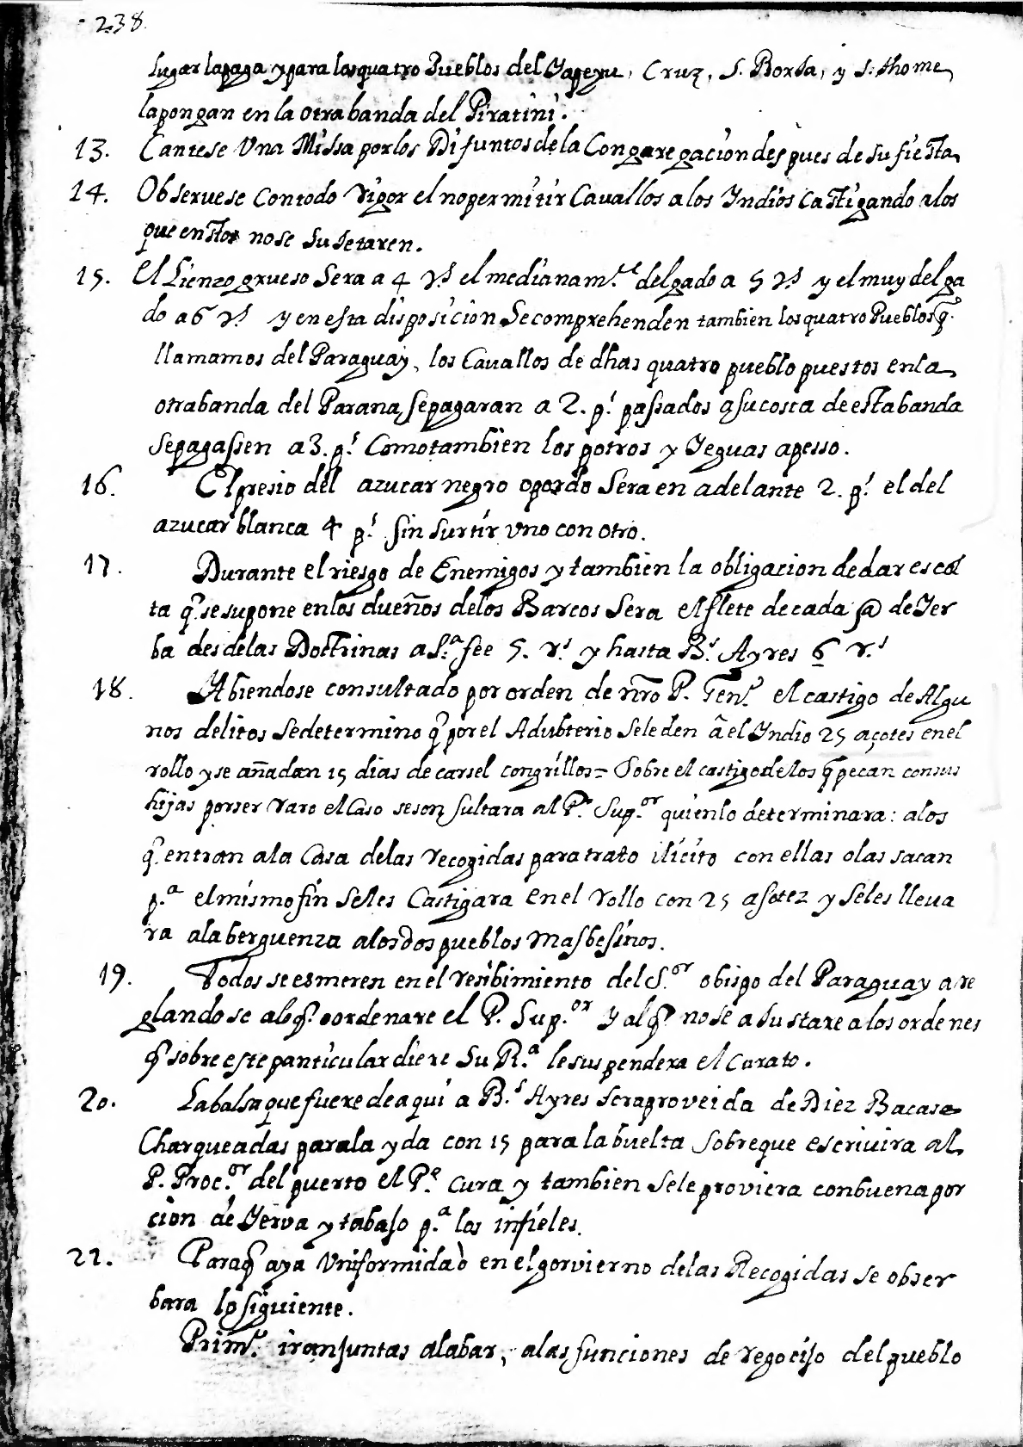 238.
lugar la paga y para los quatro Pueblos del Yapeyu, Cruz, S. Borja, y S. Thome,
la pongan en la otra banda del Piratini.
13. Cantese Una Missa por los Difuntos de la Congaregacion despues de su fiesta,
14. Observese con todo rigor el no permitir Cavallos a los Yndios Castigando a los
que en esto no se sujetaren.
15. El Lienzo grueso Sera a 4 rs. el medianamte. delgado a 5 rs. y el muy delga
do a 6 rs. y en esta disposicion Se comprehenden tambien los quatro Pueblos q.
llamamos del Paraguay, los Cavallos de dhas quatro pueblo puestos en la
otra banda del Parana, se pagaran a 2. ps. passados a su costa de esta banda
se pagassen a 3. ps. Como tambien los potros y Yeguas a pesso.
16. El presio del azucar negro o pardo Sera en adelante 2. ps. el del
azucar blanca 4 ps. sin surtir uno con otro.
17. Durante el riesgo de Enemigos y tambien la obligacion de dar escol
ta q. se supone en los dueños de los Barcos Sera el flete de cada @ de Yer
ba des de las Doctrinas a Sta. fee 5. rs. y hasta Bs. Ayres 6 rs.
18. Abiendose consultado por orden de nro P. Genl. el castigo de Algu
nos delitos se determino q. por el Adulterio se le den â el Yndio 25 açotes en el
rollo y se añadan 15 dias de carsel con grillos = Sobre el castigo de los q pecan con sus
hijas por ser raro el Caso se consultara al Pe. Supor. quien lo determinara: a los
q. entran a la Casa de las recogidas para trato ilicito con ellas o las sacan
pa. el mismo fin se les Castigara en el rollo con 25 asotez y se les lleva
ra a la berguenza a los dos pueblos mas besinos.
19. Todos se esmeren en el resibimiento del Sor. obispo del Paraguay are
glandose a lo q. ordenare el P. Supor. Y al q. no se ajustare a los ordenes
q sobre este particular diere Su Ra. le suspendera el Curato.
20. La balsa que fuere de aqui a Bs. Ayres sera proveida de Diez Bacas
Charqueadas para la yda con 15 para la buelta sobre que escrivira al
P. Procor. del puerto el Pe. Cura y tambien se le proviera con buena por
cion de Yerva y tabaso pa. los infieles.
22. Para q aya Uniformidad en el gorvierno de las Recogidas se obser
bara lo siguiente.
Primo. iran juntas alabar, a las funciones de regocijo del pueblo